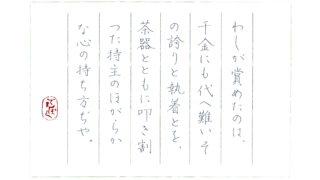 わしが賞めたのは、
千金にも代へ難いそ
の誇りと執着とを、
茶器とともに叩き割
つた持主のほがらか
な心の持ち方ぢや。